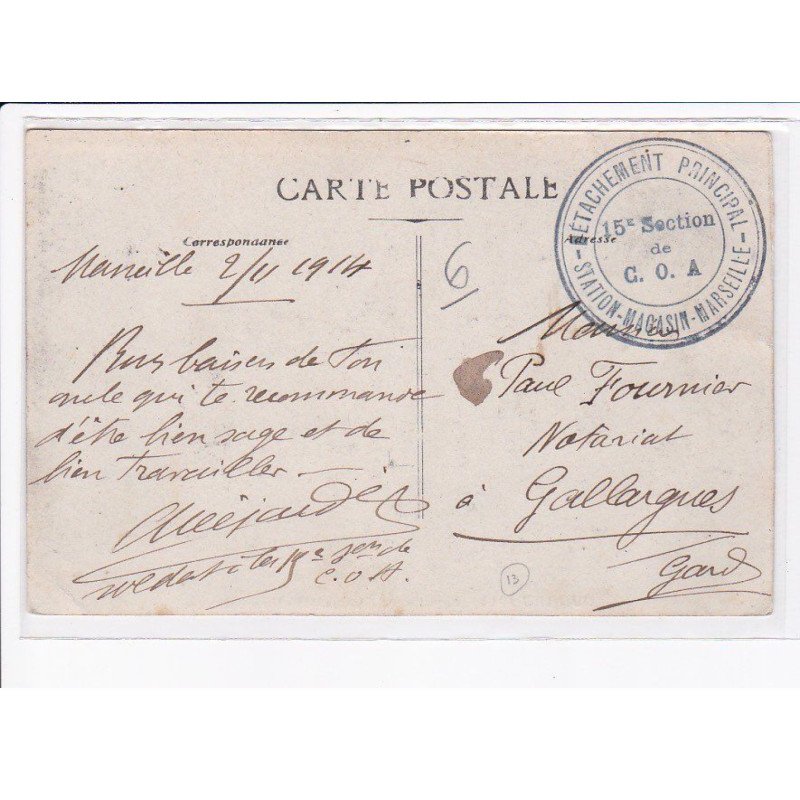 CARTE POSTALE
Correspondance
Adresse
DÉTACHEMENT PRINCIPAL
15e Section
de
C. O. A
STATION-MAGASIN-MARSEILLE
6
Marseille 2/11 1914
baisers de Ton
oncle qui te recommande
d'être bien sage et de
bien Travailler
soldat à la 15e son de
C.O.A.
Monsieur
Paul Fournier
Notariat
à Gallargues
Gard
13